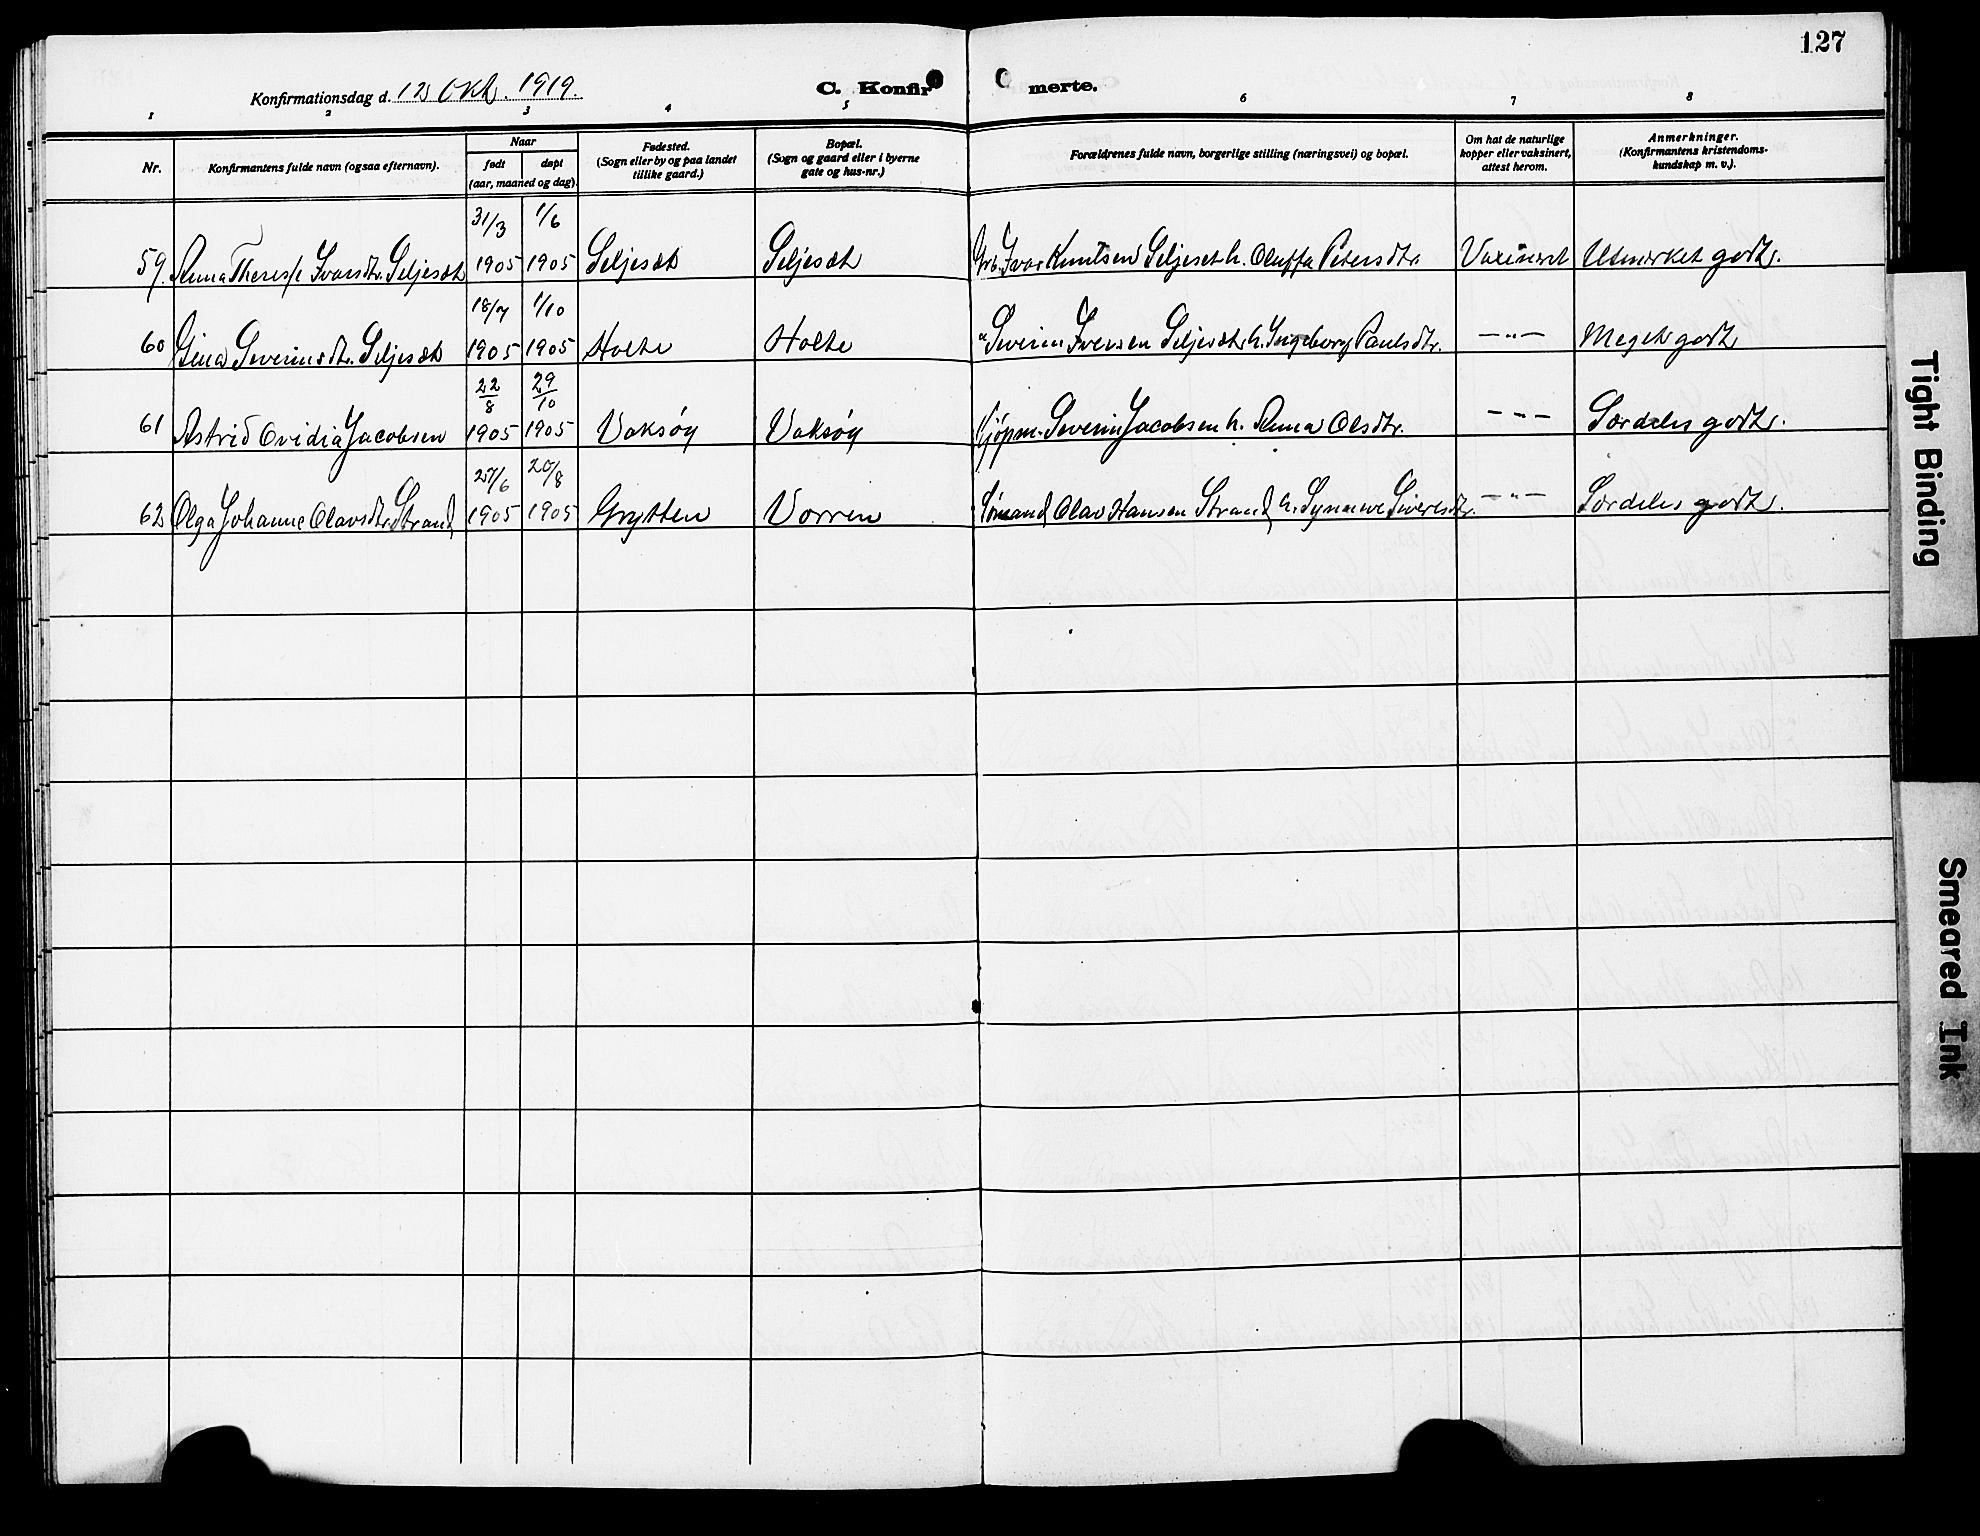 127
Konfirmationsdag d. 12 Okt. 1919.
C. Konfir merte.
1 2 3 4 5 6 7 8
Nr.
Konfirmantens fulde navn (ogsaa efternavn).
Naar
født døpt
(aar, maaned og dag)
Fødested.
(Sogn eller by og paa landet
tillike gaard.)
Bopæl.
(Sogn og gaard eller i byerne
gate og hus-nr.)
Forældrenes fulde navn, borgerlige stilling (næringsvei) og bopæl.
Om hat de naturlige
kopper eller vaksinert,
attest herom.
Anmerkninger.
(Konfirmantens kristendoms-
kundskap m. v.).
31/3 1/6
59. Anna Therese Ivarsdtr. Seljeset 1905 1905 Seljeset Seljeset Grb. Ivar Knutsen Seljeset h. Oluffa Petersdtr Vaxineret Utmerket godt.
18/7 1/10
60 Gina Severinsdtr. Seljeset 1905 1905 Holte Holte " Severin Iversen Seljeset h. Ingeborg Paulsdtr. —"— Meget godt
22/8 29/10
61 Astrid Ovidia Jacobsen 1905 1905 Vaksøy Vaksøy Kjøpm. Severin Jacobsen h. Anna Olsdtr. —"— Særdeles godt.
27/6 20/8
62 Olga Johanne Olavsdtr. Strand 1905 1905 Grytten Vorren Sømand Olav Hansen Strand h. Synnøve Siversdtr. —"— Særdeles godt.
Tight Binding
Smeared Ink